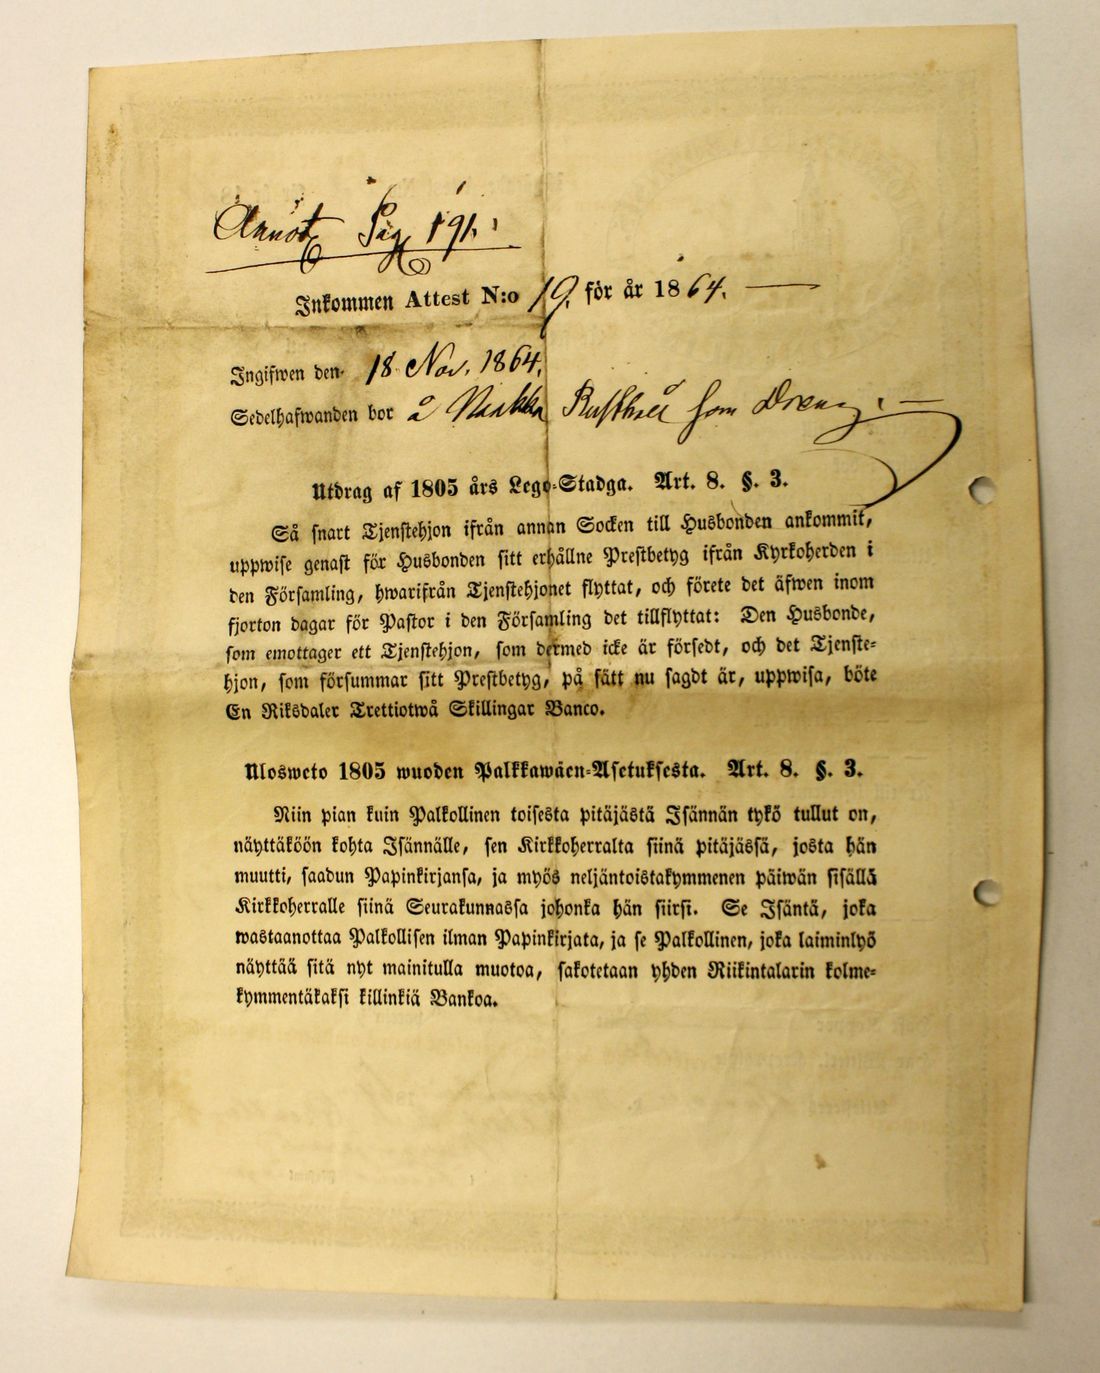 Annot. Pag 191.
Inkommen Attest N:o 19. för år 1864.
Ingifwen den 18 Nov. 1864.
Sedelhafwanden bor å Rusthåll som Dreng.
Utdrag af 1805 års Lego-Stadga. Art. 8. §. 3.
Så snart Tjenstehjon ifrån annan Socken till Husbonden ankommit,
uppwise genast för Husbonden sitt erhållne Prestbetyg ifrån Kyrkoherden i
den Församling, hwarifrån Tjenstehjonet flyttat, och förete det äfwen inom
fjorton dagar för Pastor i den Församling det tillflyttat: Den Husbonde,
som emottager ett Tjenstehjon, som dermed icke är försedt, och det Tjenste-
hjon, som försummar sitt Prestbetyg, på sätt nu sagdt är, uppwisa, böte
En Riksdaler Trettiotwå Skillingar Banco.
Ulosweto 1805 wuoden Palkkawäen-Asetuksesta. Art. 8. §. 3.
Niin pian kuin Palkollinen toisesta pitäjästä Isännän tykö tullut on,
näyttäköön kohta Isännälle, sen Kirkkoherralta siinä pitäjässä, josta hän
muutti, saadun Papinkirjansa, ja myös neljäntoistakymmenen päiwän sisällä
Kirkkoherralle siinä Seurakunnassa johonka hän siirsi. Se Isäntä, joka
wastaanottaa Palkollisen ilman Papinkirjata, ja se Palkollinen, joka laiminlyö
näyttää sitä nyt mainitulla muotoa, sakotetaan yhden Riikintalarin kolme-
kymmentäkaksi killinkiä Bankoa.